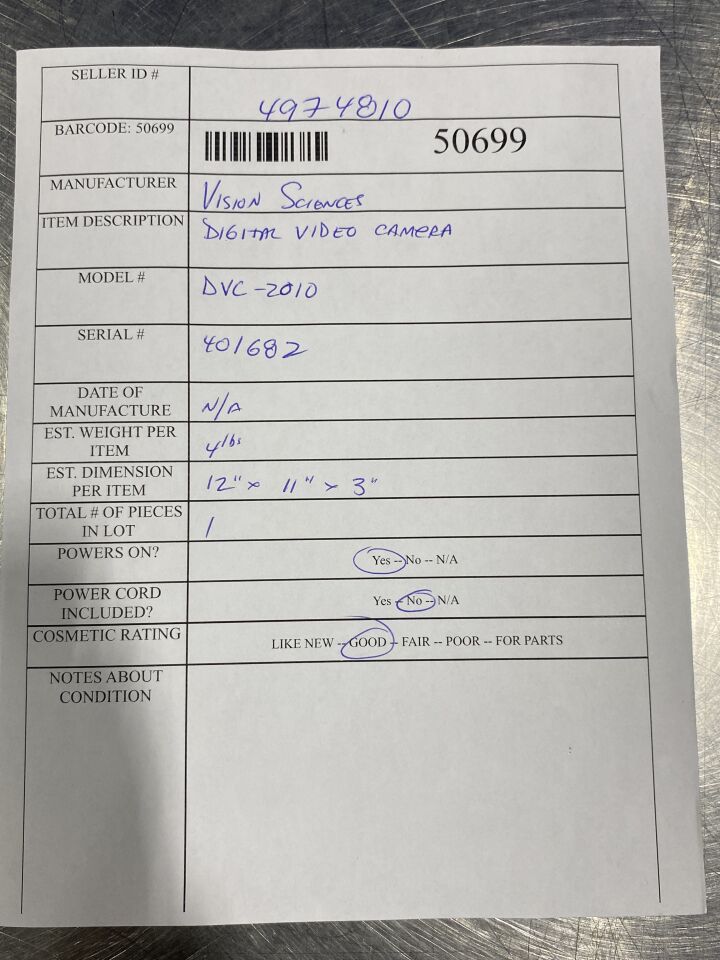 SELLER ID # 4974810
BARCODE: 50699 50699
MANUFACTURER Vision Sciences
ITEM DESCRIPTION DIGITAL VIDEO CAMERA
MODEL # DVC-2010
SERIAL # 401682
DATE OF
MANUFACTURE N/A
EST. WEIGHT PER
ITEM 4 lbs
EST. DIMENSION
PER ITEM 12" x 11" x 3"
TOTAL # OF PIECES
IN LOT 1
POWERS ON? Yes -- No -- N/A
POWER CORD
INCLUDED? Yes -- No -- N/A
COSMETIC RATING LIKE NEW -- GOOD -- FAIR -- POOR -- FOR PARTS
NOTES ABOUT
CONDITION